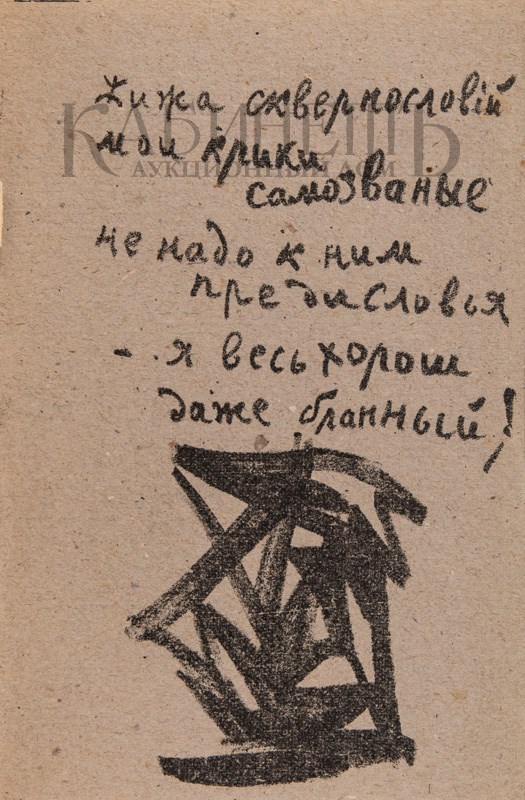 Жижа сквернословій
мои крики
самозваные
не надо к ним
предисловья
- я весь хорош
даже бранный!
КАБИНЕТЪ
АУКЦИОННЫЙ ДОМ